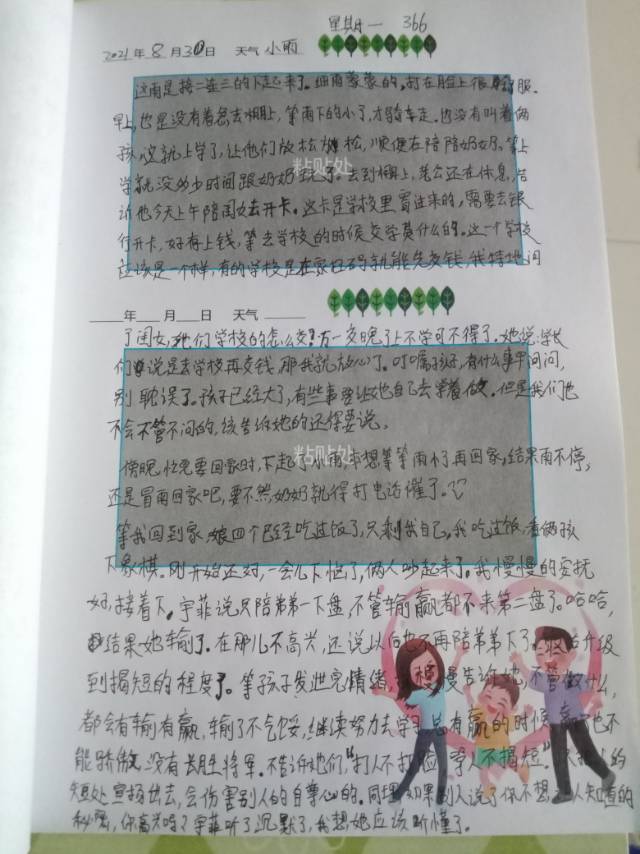 星期一 366
2021年8月30日 天气 小雨
这雨是接二连三的下起来了。细雨蒙蒙的,打在脸上很舒服。
早上,也是没有着急去棚上,等雨下的小了,才骑车走。也没有叫着俩
孩,这就上学了,让他们放松放松,顺便在陪陪奶奶。等上
学就没多少时间跟奶奶玩了。去到棚上,老公还在休息,告
诉他今天上午陪闺女去开卡。这卡是学校里寄过来的,需要去银
行开卡,好存上钱,等去学校的时候交学费什么的。这一个学校
应该是一个样,有的学校是在家扫码就能先交钱,我特地问
粘贴处
年 月 日 天气
了闺女,她们学校的怎么交?万一交晚了上不学可不得了。她说:学长
们说是去学校再交钱,那我就放心了。叮嘱孩子,有什么事早问问,
别耽误了。孩子已经大了,有些事要让她自己去学着做。但是我们也
不会不管不问的,该告诉她的还得要说。
粘贴处
傍晚,忙完要回家时,下起了小雨,本想等等雨小了再回家,结果雨不停,
还是冒雨回家吧,要不然,奶奶就得打电话催了。
等我回到家,娘四个已经吃过饭了,只剩我自己。我吃过饭,看俩孩
下象棋。刚开始还好,一会儿下恼了,俩人吵起来了。我慢慢的安抚
好,接着下。宇菲说只陪弟弟一下盘,不管输赢都不来第二盘了。哈哈,
结果她输了。在那儿不高兴,还说以后也不再陪弟弟下了。 升级
到揭短的程度了。等孩子发泄完情绪, 慢慢告诉她,不管做什么,
都会有输有赢,输了不气馁,继续努力去学,总有赢的时候,赢了也不
能骄傲,没有长胜将军。不告诉她们,"打人不打脸,骂人不揭短"。 的
短处宣扬出去,会伤害别人的自尊心的。同理,如果别人说了你不想让人知道的
秘密,你高兴吗?宇菲听了沉默了,我想她应该听懂了。